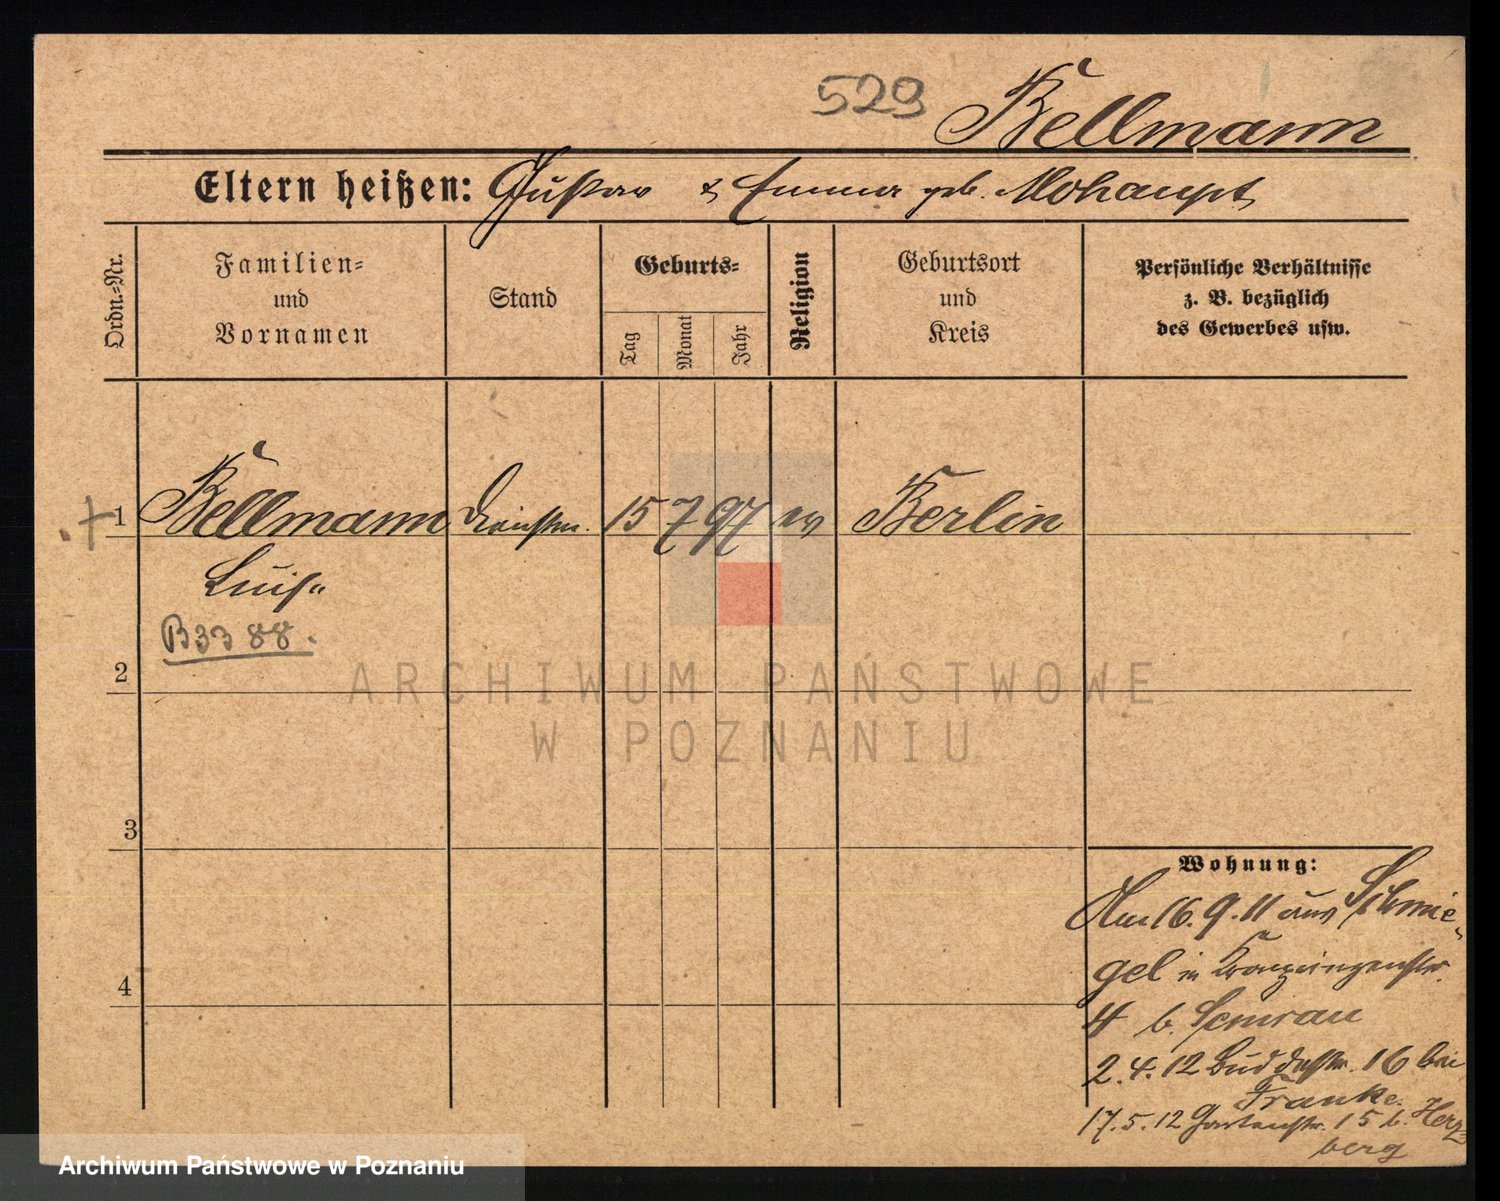 529 Bellmann
Eltern heißen: Gustav & Emma geb. Mohaupt
Ordn.=Nr.
Familien=
und
Vornamen
Stand
Geburts=
Tag
Monat
Jahr
Religion
Geburtsort
und
Kreis
Persönliche Verhältnisse
z. B. bezüglich
des Gewerbes usw.
+ 1 Bellmann 15 7 97 ev Berlin
Luise
B3388.
2
3
4
Wohnung:
Am 16. 9. 11 aus Schmie-
gel in
4 b.
2. 4. 12 16 bei
Franke.
17. 5. 12 Gartenstr. 15 b. Herz=
berg
ARCHIWUM PAŃSTWOWE
W POZNANIU
Archiwum Państwowe w Poznaniu